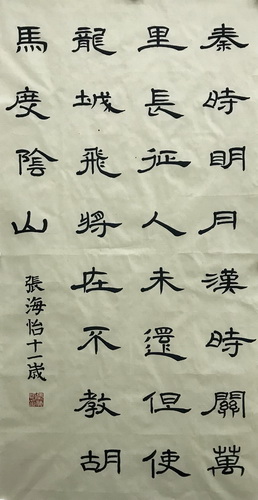 秦時明月漢時關萬
里長征人未還但使
龍城飛將在不教胡
馬度陰山
張海怡十一歲